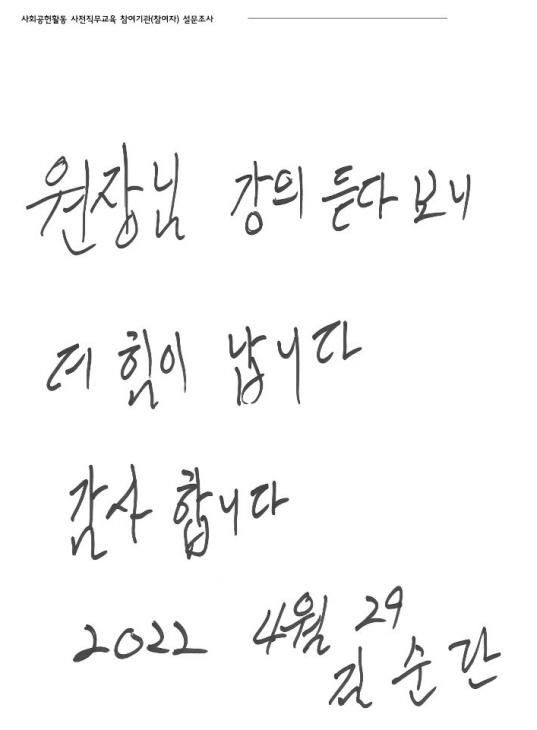 사회공헌활동 사전직무교육 참여기관(참여자) 설문조사
원장님 강의 듣다 보니
더 힘이 납니다
감사 합니다
2022 4월 29
김 순 단